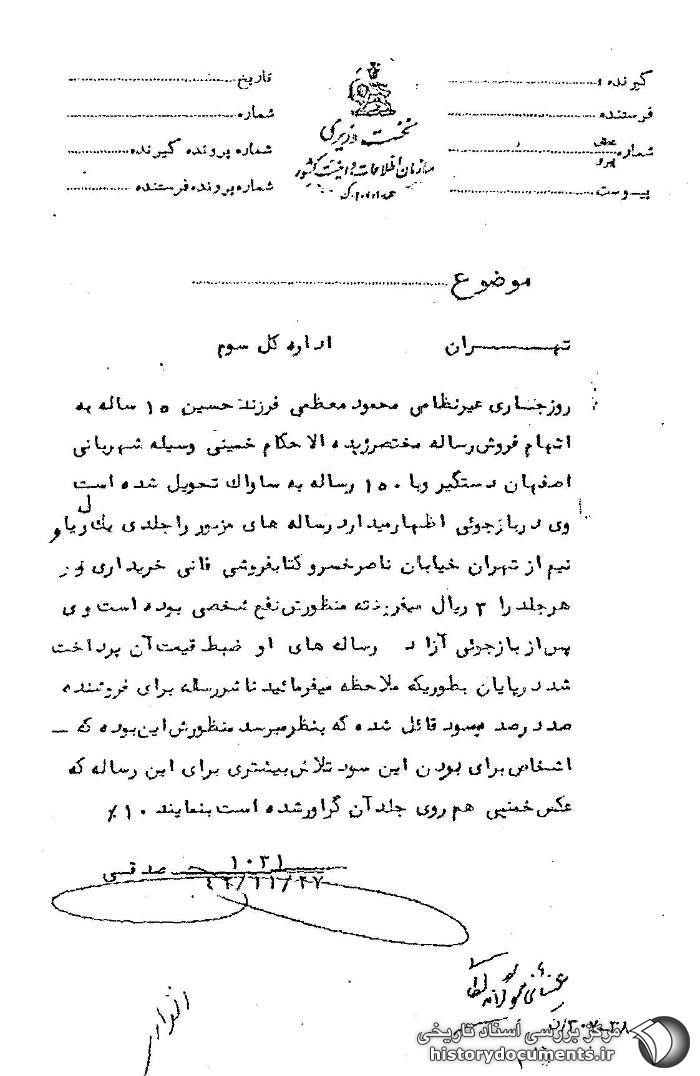 گیرنده
فرستنده
شماره
پیوست
نخست وزیری
سازمان اطلاعات و امنیت کشور
تاریخ
شماره
شماره پرونده گیرنده
شماره پرونده فرستنده
موضوع
تهران اداره کل سوم
روزجاری غیرنظامی محمود معظمی فرزند حسین ۱۵ ساله به
اتهام فروش رساله مختصر زبده الاحکام خمینی وسیله شهربانی
اصفهان دستگیر وبا ۱۵۰ رساله به ساواک تحویل شده است
وی در بازجوئی اظهارمیدارد رساله های مزبور را جلدی یک ریال و
نیم از تهران خیابان ناصرخسرو کتابفروشی خریداری و
هرجلد را ۳ ریال میفروخته منظورش نفع شخصی بوده است وی
پس از بازجوئی آزاد رساله های او ضبط قیمت آن پرداخت
شد درپایان بطوریکه ملاحظه میفرمائید ناشر رساله برای فروشنده
صد در صد سود قائل شده که بنظرمیرسد منظورش این بوده که –
اشخاص برای بودن این سود تلاش بیشتری برای این رساله که
عکس خمینی هم روی جلد آن گراور شده است بنمایند ۱۰٪
۱۰۳۱
صدقی
۴۲/۱۱/۲۷
مرکز بررسی اسناد تاریخی
historydocuments.ir